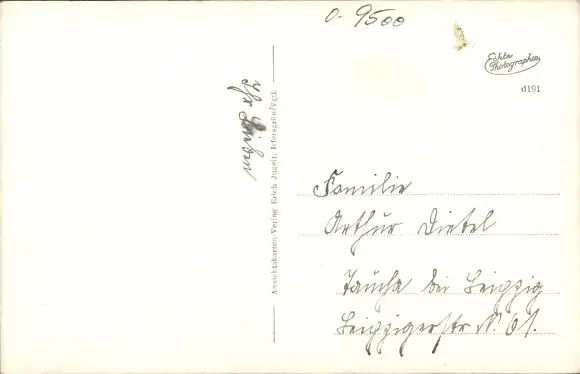 0-9500
Echte
Photographie
d191
Ansichtskarten-Verlag Erich Jugelt, Ellefeld/Vgtl.
Familie
Arthur Dietel
Taucha bei Leipzig
Leipzigerstr N. 61.